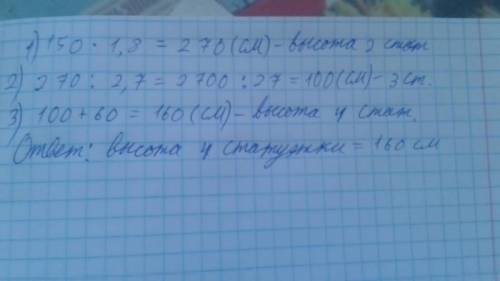 1) 150 · 1,8 = 270 (см) - высота 2 стат.
2) 270 : 2,7 = 2700 : 27 = 100 (см) - 3 ст.
3) 100 + 60 = 160 (см) - высота 4 стат.
Ответ: высота 4 статуэтки = 160 см